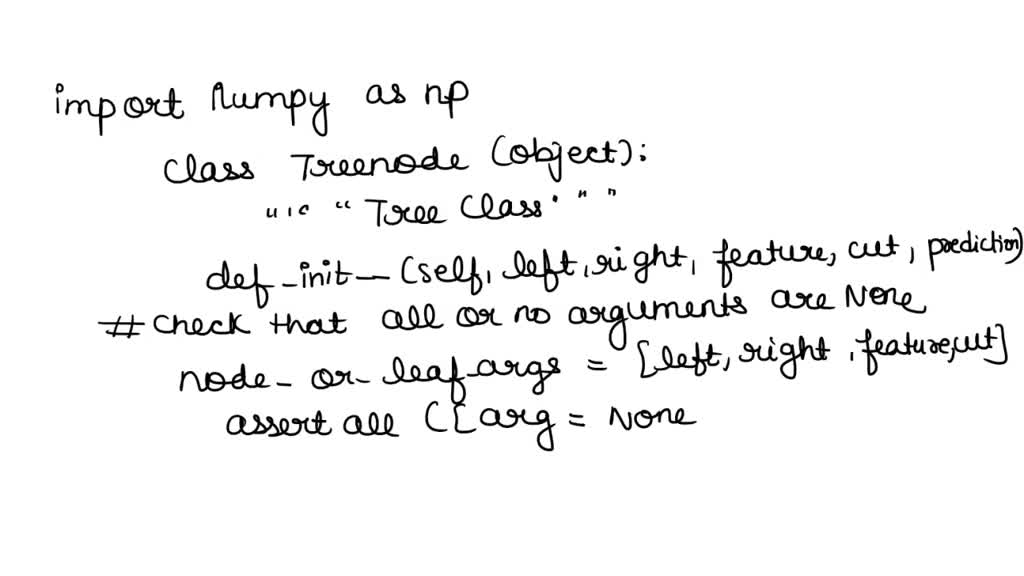 import numpy as np
class Treenode (object):
" " " Tree Class. " "
def _init_ (self, left, right, feature, cut, prediction)
# check that all or no arguments are None
node_or_leaf_args = [left, right, feature, cut]
assert all ([arg = None